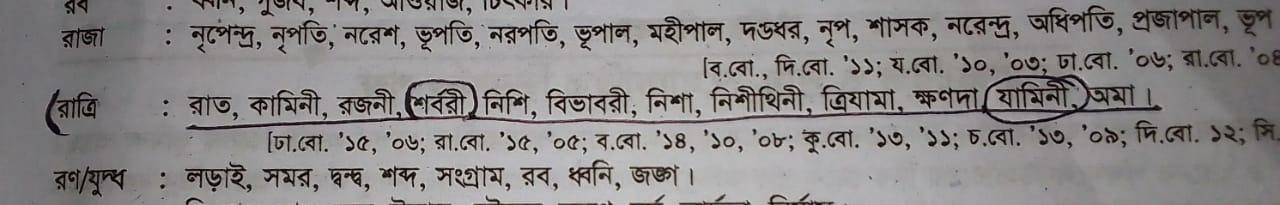 রাজা : নৃপেন্দ্র, নৃপতি, নরেশ, ভূপতি, নরপতি, ভূপাল, মহীপাল, দণ্ডধর, নৃপ, শাসক, নরেন্দ্র, অধিপতি, প্রজাপাল, ভূপ
[ব.বো., দি.বো. '১১; য.বো. '১০, '০৭; ঢা.বো. '০৬; রা.বো. '০৪
রাত্রি : রাত, কামিনী, রজনী, শর্বরী, নিশি, বিভাবরী, নিশা, নিশীথিনী, ত্রিযামা, ক্ষণদা, যামিনী, অমা।
[ঢা.বো. '১৫, '০৬; রা.বো. '১৫, '০৫; ব.বো. '১৪, '১০, '০৮; কু.বো. '১৩, '১১; চ.বো. '১৩, '০৯; দি.বো. ১২; সি
রণ/যুদ্ধ : লড়াই, সমর, দ্বন্দ্ব, শব্দ, সংগ্রাম, রব, ধ্বনি, জঙ্গ।